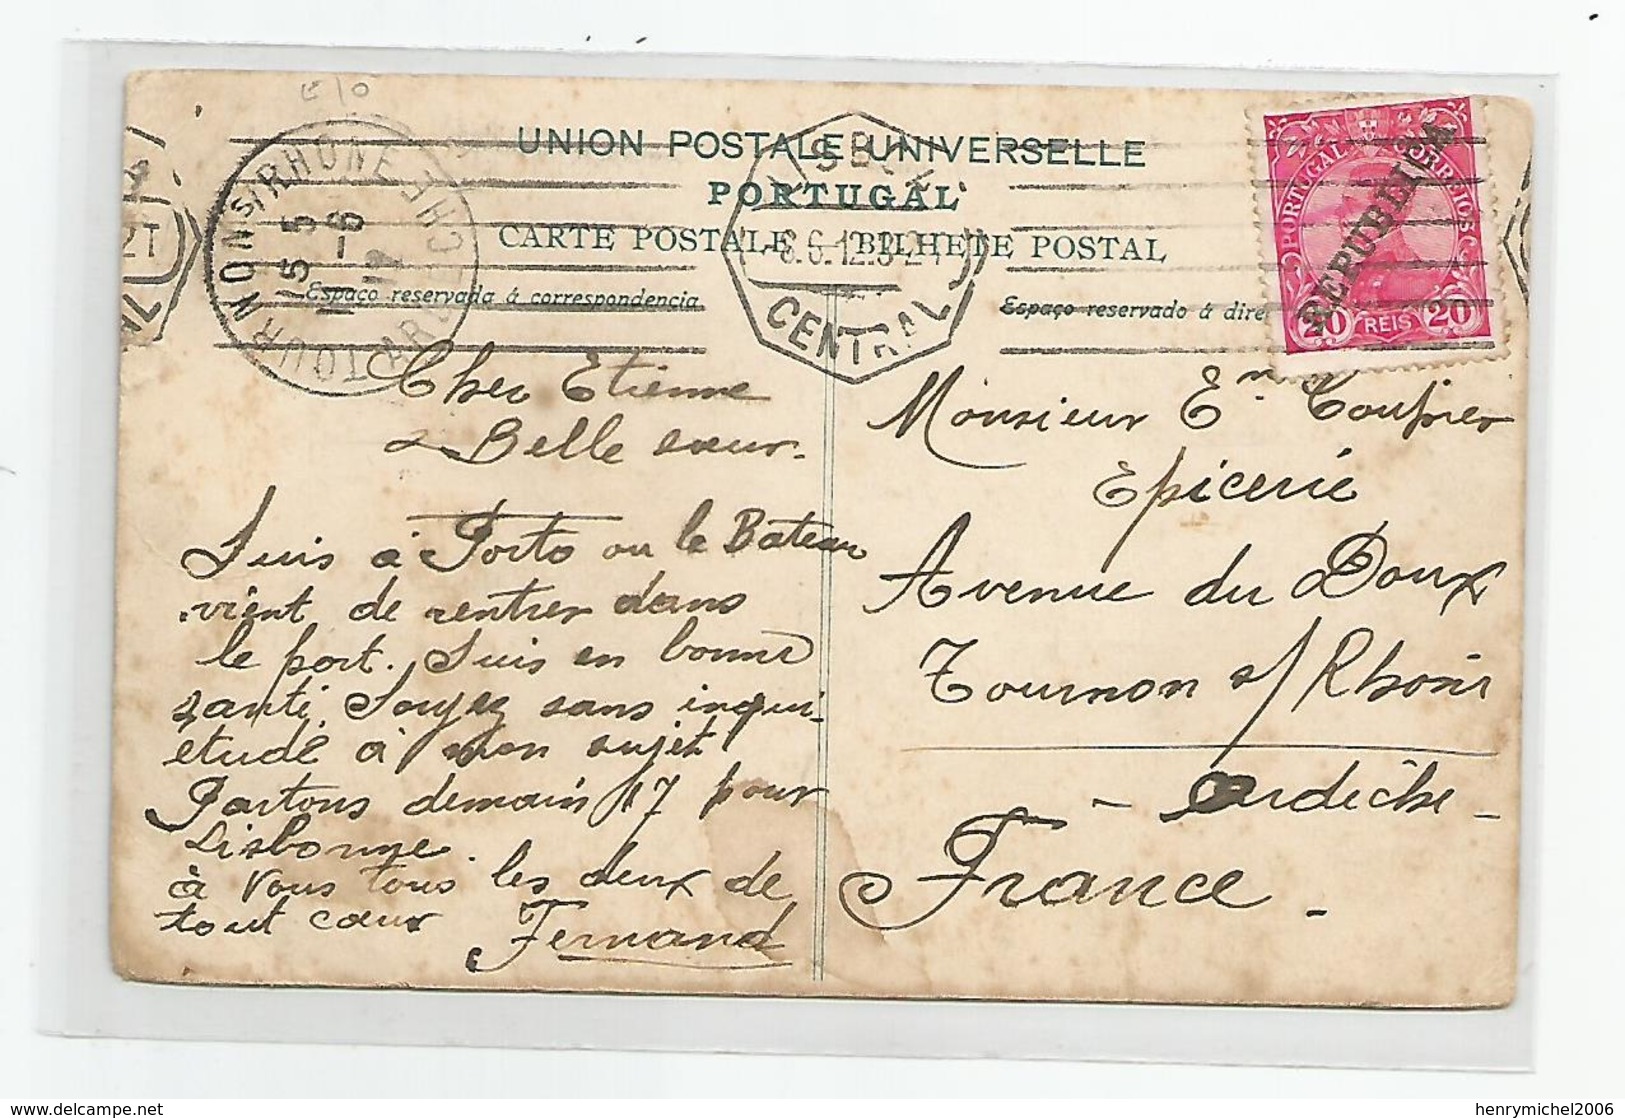 UNION POSTALE UNIVERSELLE
PORTUGAL
CARTE POSTALE - BILHETE POSTAL
Espaço reservada á correspondencia
Espaço reservado á dire
TOURNON S/ RHONE ARDECHE
15 5
11-6
12
LISBOA
6.6.12.
CENTRAL
PORTUGAL CORREIOS
REPUBLICA
20 REIS 20
Cher Etienne
Belle sœur.
Suis à Porto ou le Bateau
vient de rentrer dans
le port. Suis en bonne
santé. Soyez sans inqui-
etude à mon sujet
Partons demain 17 pour
Lisbonne.
à vous tous les deux de
tout cœur Fernand
Monsieur En. Coupier
Epicerie
Avenue du Doux
Tournon s/ Rhône
- Ardèche -
France.
henrymichel2006